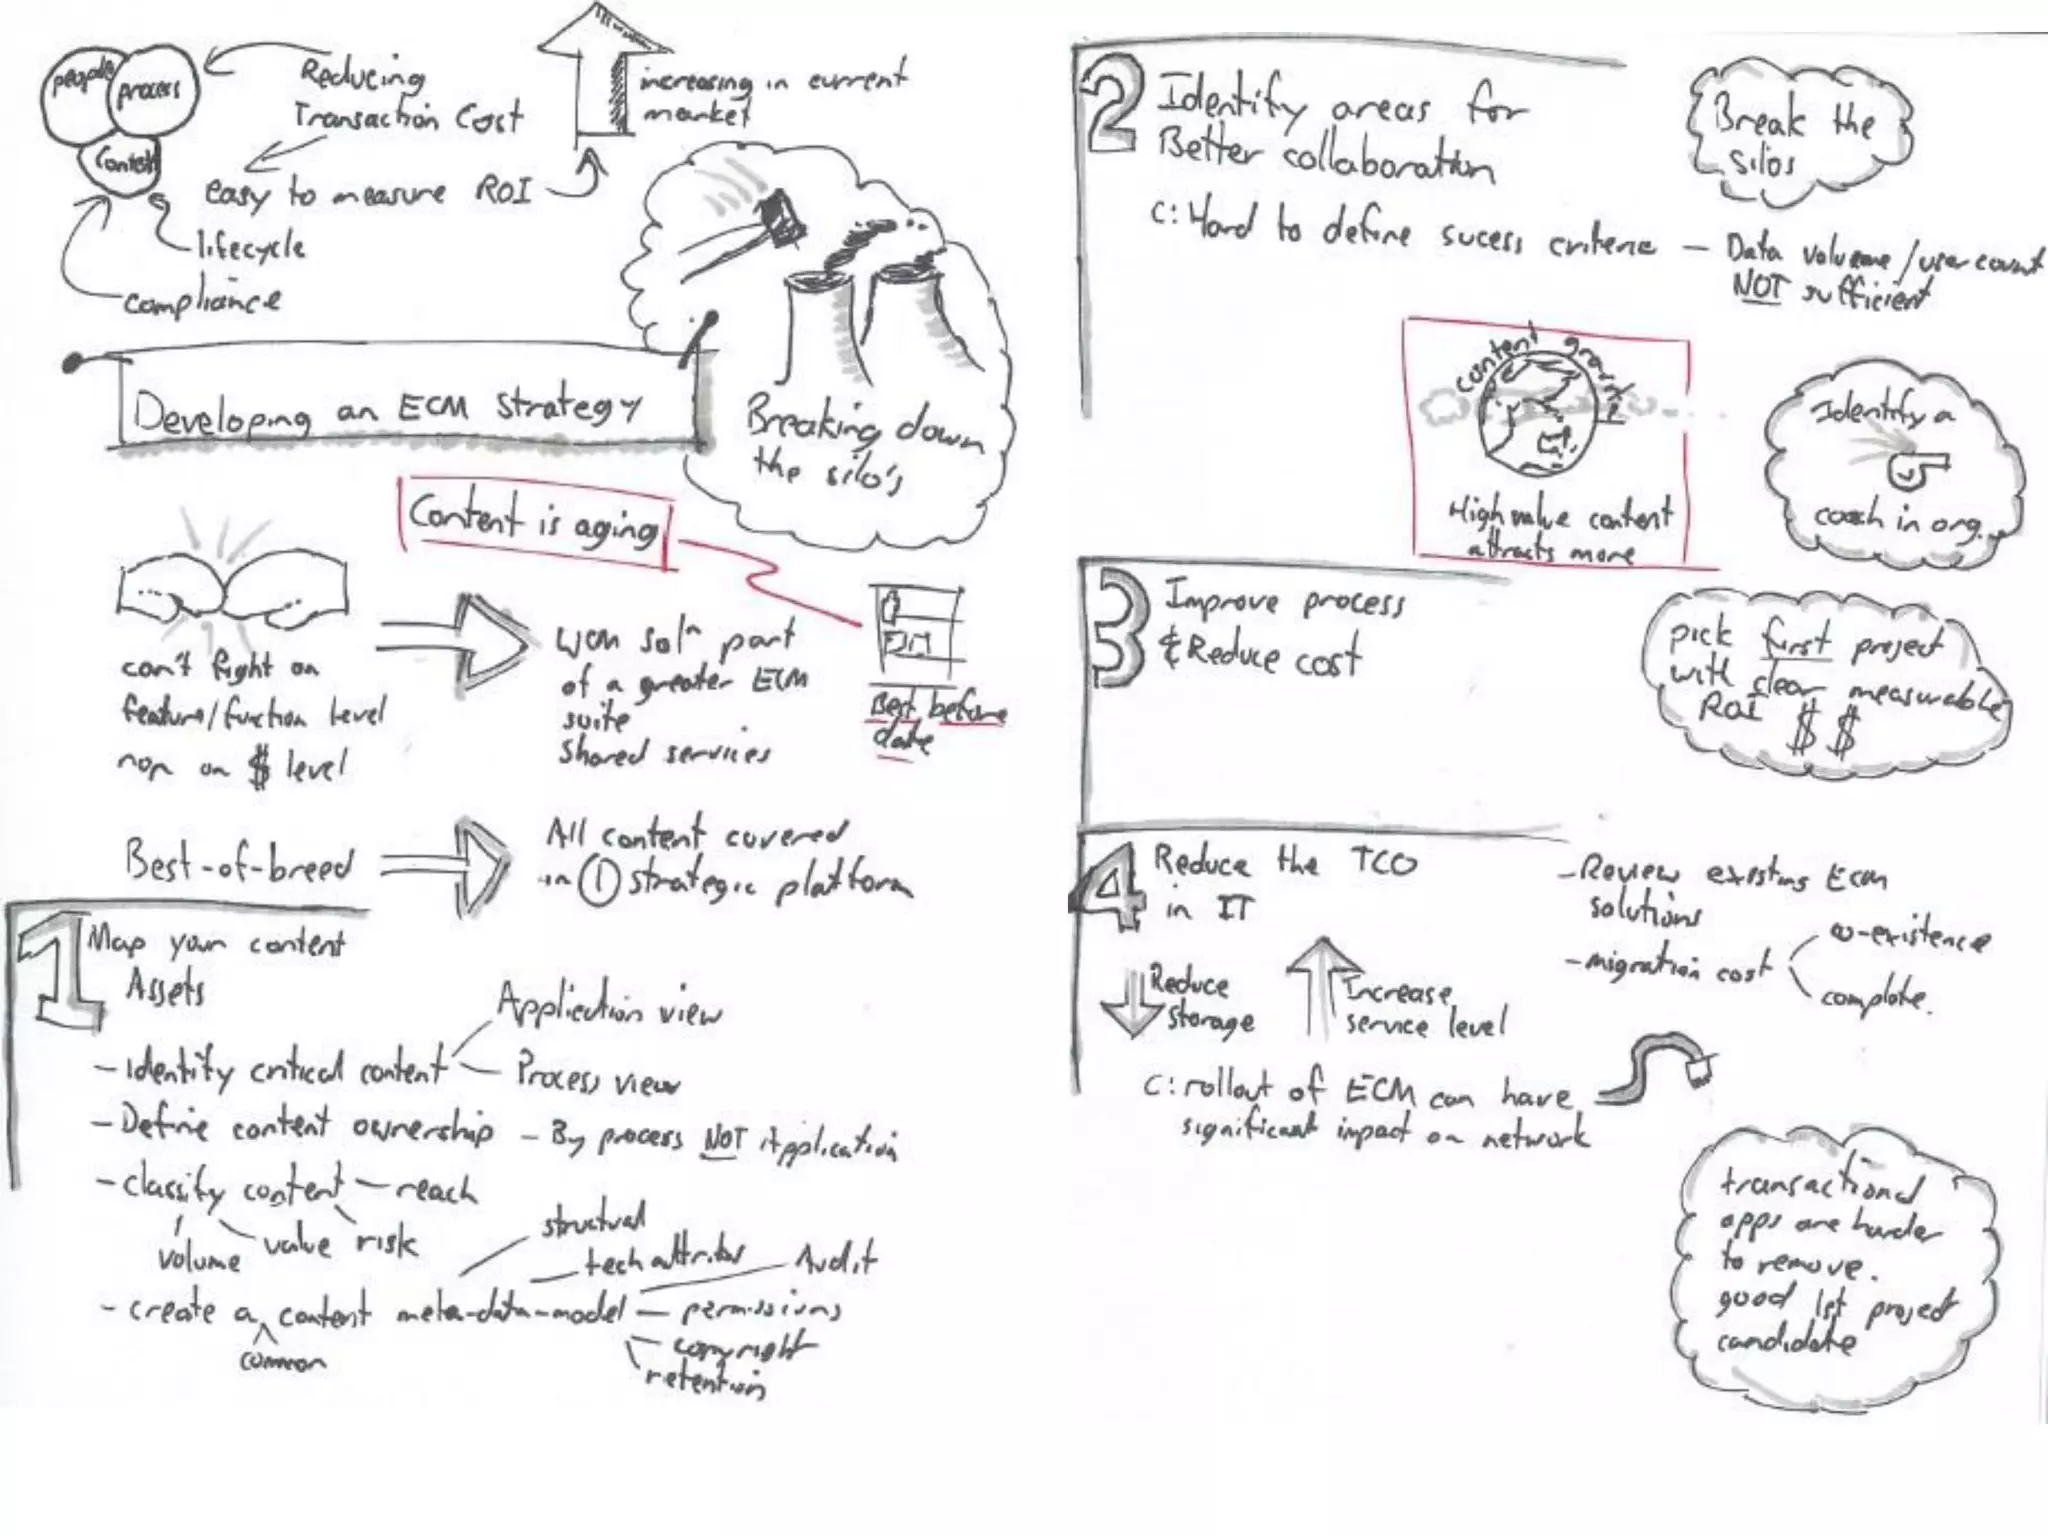 people
process
Content
Reducing
Transaction Cost
increasing in current
market
easy to measure ROI
lifecycle
compliance
Developing an ECM Strategy
Breaking down
the silo's
Content is aging
can't fight on
feature/function level
nor on $ level
WCM soln part
of a greater ECM
suite
shared services
Best before
date
Best-of-breed
All content covered
in 1 strategic platform
1 Map your content
Assets
- Identify critical content
Application view
- Process view
- Define content ownership - By process NOT Application
- classify content - reach
volume
value
risk
structural
tech attribs
Audit
- create a content meta-data-model - permissions
common
- copyright
retention
2 Identify areas for
Better collaboration
Break the
silos
C: Hard to define sucess criteria - Data volume/user count
NOT sufficient
content gravity
High value content
attracts more
Identify a
coach in org.
3 Improve process
& Reduce cost
pick first project
with clear measurable
ROI $ $
4 Reduce the TCO
in IT
- Review existing ECM
solutions
- migration cost
co-existence
complete.
Reduce
storage
Increase
service level
C: rollout of ECM can have
significant impact on network
transactional
apps are harder
to remove.
good 1st project
candidate